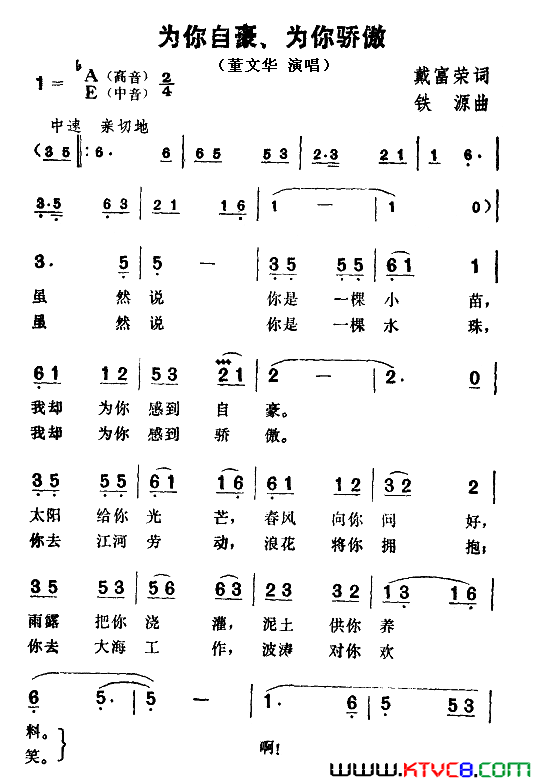 为你自豪、为你骄傲
（董文华 演唱）
1= ♭A（高音） 2/4
E（中音）
戴富荣词
铁 源曲
中速 亲切地
（3 5 ‖: 6· 6 | 6 5 5 3 | 2·3 2 1 | 1 6· |
3·5 6 3 | 2 1 1 6 | 1 — | 1 0） |
3· 5 | 5 — | 3 5 5 5 | 6 1 1 |
虽 然 说 你是 一棵 小 苗，
虽 然 说 你是 一棵 水 珠，
6 1 1 2 | 5 3 2 1 | 2 — | 2· 0 |
我却 为你 感到 自 豪。
我却 为你 感到 骄 傲。
3 5 5 5 | 6 1 1 6 | 6 1 1 2 | 3 2 2 |
太阳 给你 光 芒，春风 向你 问 好，
你去 江河 劳 动，浪花 将你 拥 抱；
3 5 5 3 | 5 6 6 3 | 2 3 5 3 | 1 3 1 6 |
雨露 把你 浇 灌，泥土 供你 养
你去 大海 工 作，波涛 对你 欢
6 5· | 5 — | 1· 6 | 5 5 3 |
料。
笑。
啊！
www.KTVC8.com